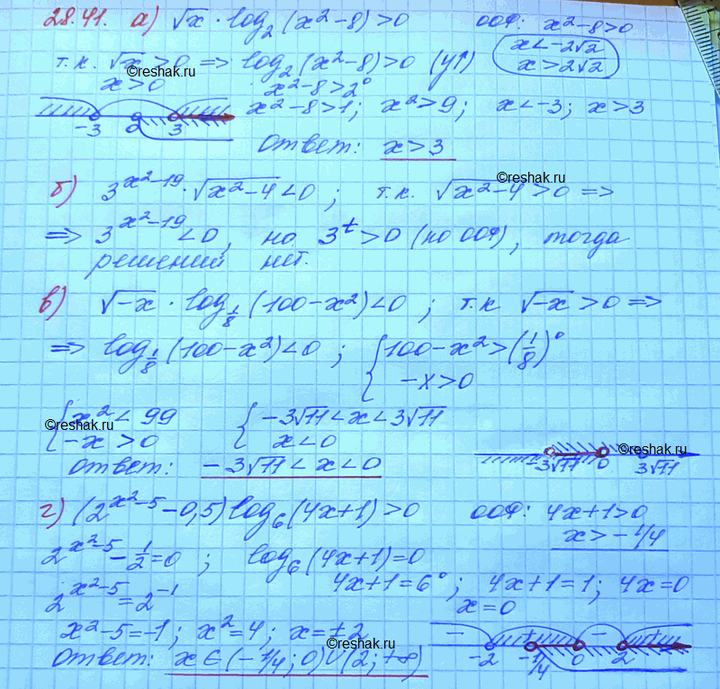 28.41. а) √x · log₂(x²-8)>0   ООФ: x²-8>0
x<-2√2
x>2√2
т.к. √x>0 => log₂(x²-8)>0 (y↑)
©reshak.ru
x>0   x²-8>2⁰
x²-8>1; x²>9; x<-3; x>3
-3 0 3
Ответ: x>3
©reshak.ru
б) 3^(x²-19) · √(x²-4)<0; т.к. √(x²-4)>0 =>
=> 3^(x²-19)<0, но 3^t>0 (по ООФ), тогда
решений нет.
в) √(-x) · log_(1/8)(100-x²)<0; т.к √(-x)>0 =>
=> log_(1/8)(100-x²)<0; { 100-x²>(1/8)⁰
-x>0
{ x²<99   { -3√11<x<3√11
©reshak.ru
-x>0   x<0
©reshak.ru
-3√11 0 3√11
Ответ: -3√11<x<0
г) (2^(x²-5)-0,5)log₆(4x+1)>0   ООФ: 4x+1>0
x>-1/4
2^(x²-5)-1/2=0; log₆(4x+1)=0
4x+1=6⁰; 4x+1=1; 4x=0
2^(x²-5)=2^(-1)   x=0
x²-5=-1; x²=4; x=±2
- + - +
-2 -1/4 0 2
Ответ: x∈(-1/4; 0)∪(2; +∞)